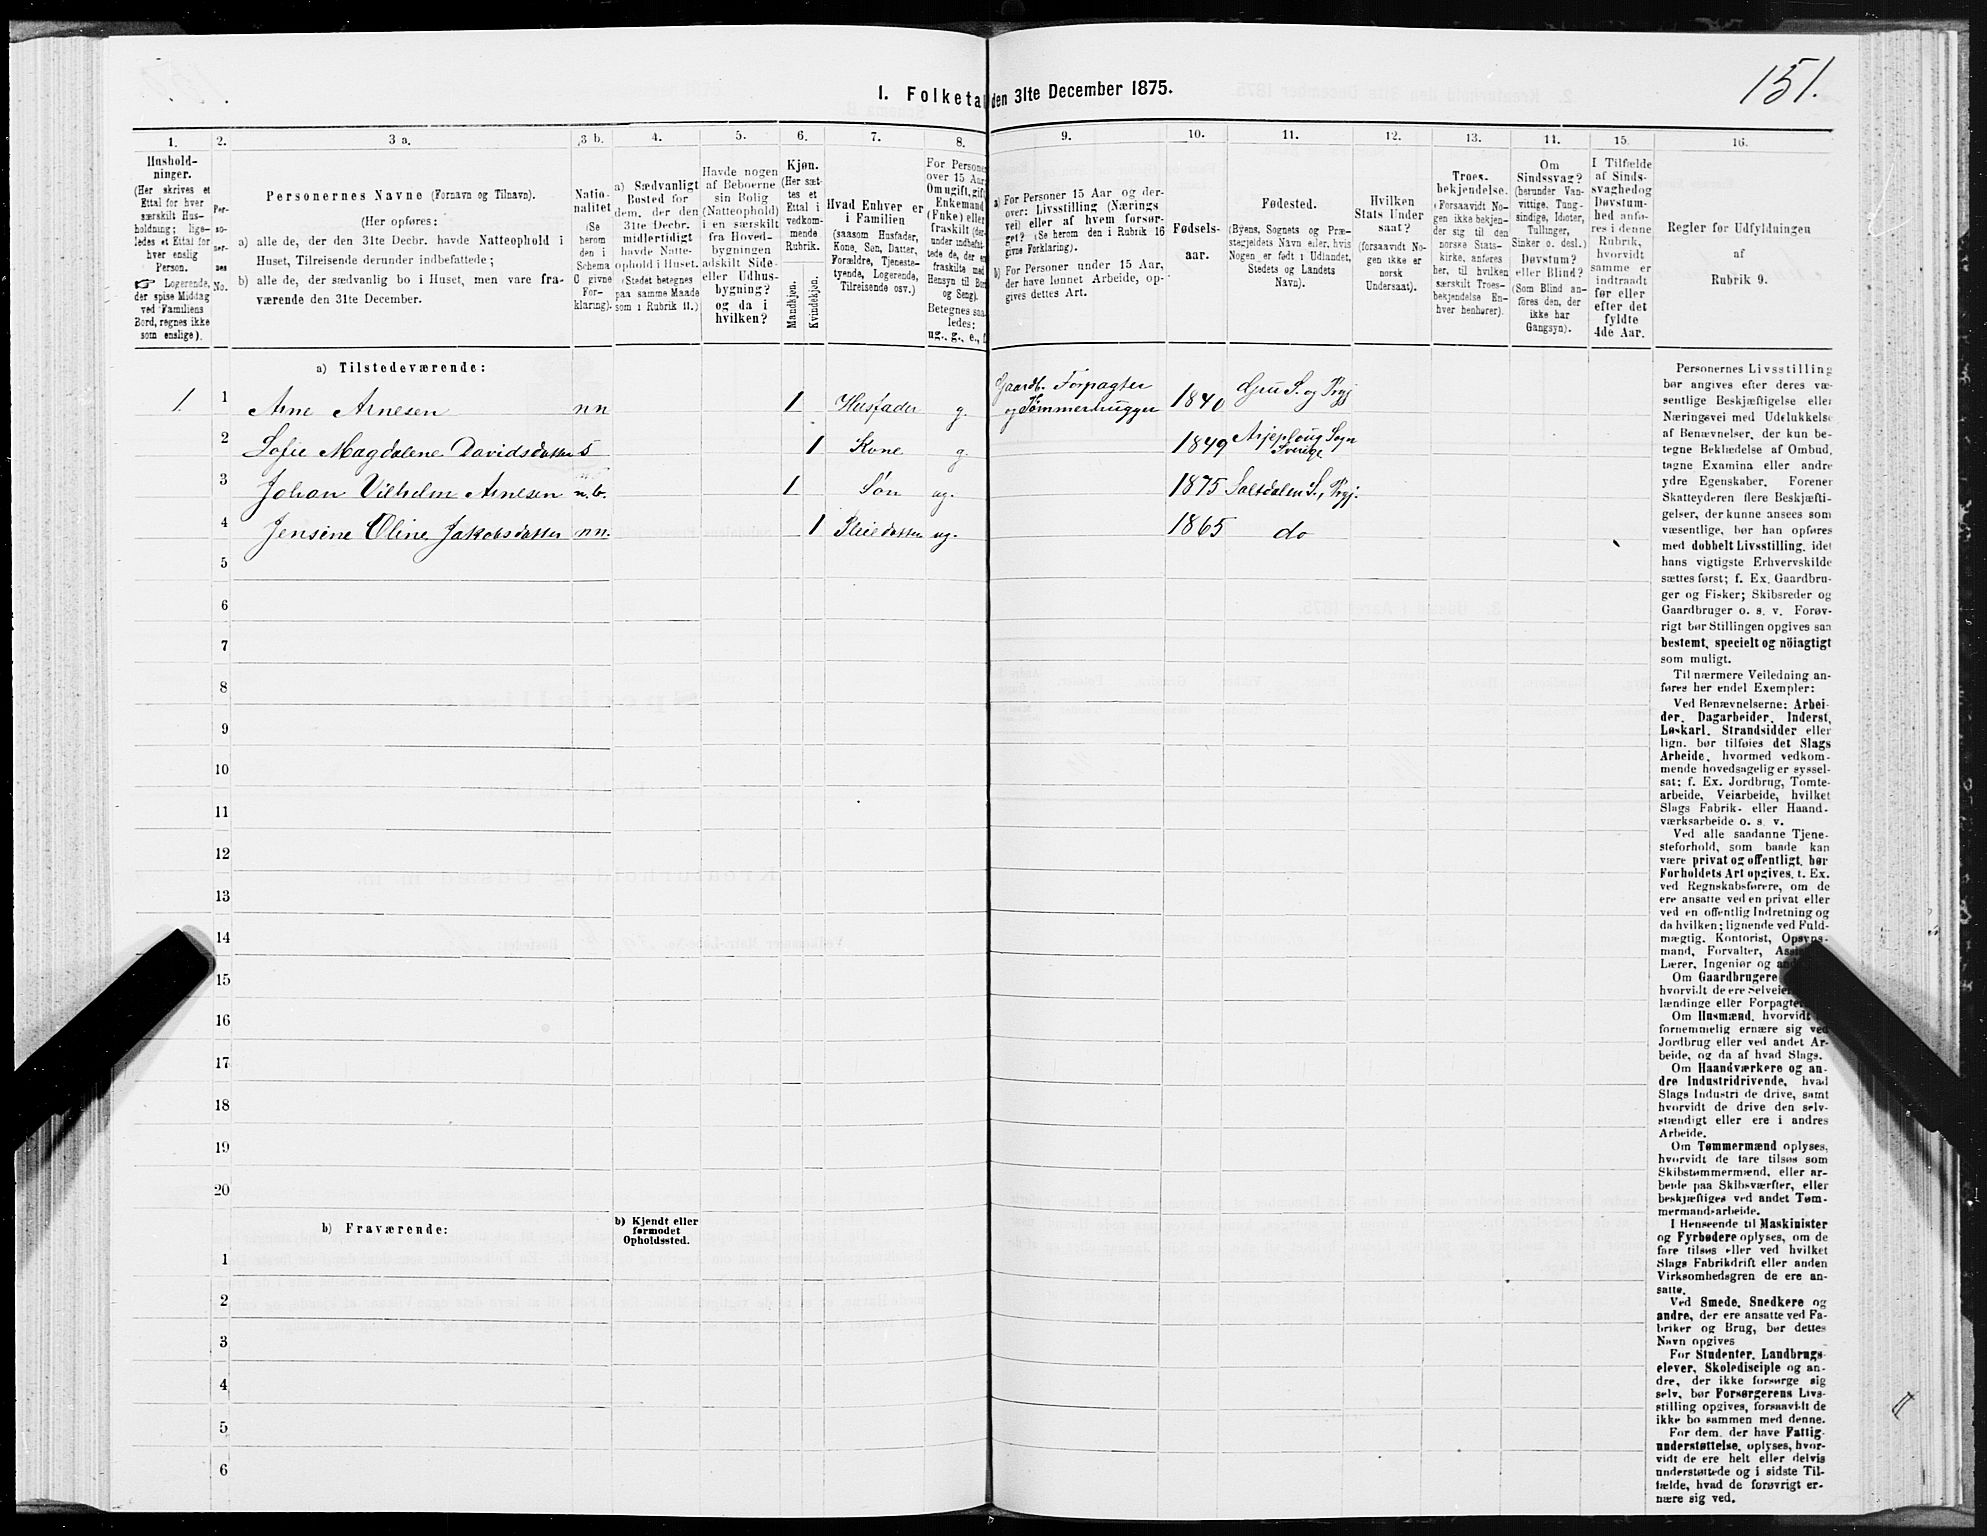 151.
1. Folketal den 31te December 1875.
1.
2.
3 a.
3 b.
4.
5.
6.
7.
8.
9.
10.
11.
12.
13.
14.
15.
16.
Hushold-
ninger.
(Her skrives et
Ettal for hver
særskilt Hus-
holdning; lige-
ledes et Ettal for
hver enslig
Person.
☞ Logerende,
der spise Middag
ved Familiens
Bord, regnes ikke
som enslige).
Per-
so-
ner-
nes
No.
Personernes Navne (Fornavn og Tilnavn).
(Her opføres:
a) alle de, der den 31te Decbr. havde Natteophold i
Huset, Tilreisende derunder indbefattede;
b) alle de, der sædvanlig bo i Huset, men vare fra-
værende den 31te December.
Natio-
nalitet
(Se
herom
den i
Schema
O givne
For-
klaring).
a) Sædvanligt
Bosted for
dem, der den
31te Decbr.
midlertidigt
havde Natte-
ophold i Huset.
(Stedet betegnes
paa samme Maade
som i Rubrik 11.)
Havde nogen
af Beboerne
sin Bolig
(Natteophold)
i en særskilt
fra Hoved-
bygningen
adskilt Side-
eller Udhus-
bygning?
og da i
hvilken?
Kjøn.
(Her sæt-
tes et
Ettal i
vedkom-
mende
Rubrik.
Mandkjøn.
Kvindekjøn.
Hvad Enhver er
i Familien
(saasom Husfader,
Kone, Søn, Datter,
Forældre, Tjeneste-
tyende, Logerende,
Tilreisende osv.)
For Personer
over 15 Aar:
Om ugift, gift,
Enkemand
(Enke) eller
fraskilt (der-
under indbefat-
tede de, der ere
fraskilte med
Hensyn til Bord
og Seng).
Betegnes saa-
ledes:
ug., g., e., f.
a) For Personer 15 Aar og der-
over: Livsstilling (Nærings
vei) eller af hvem forsør-
get? (Se herom den i Rubrik 16
givne Forklaring).
b) For Personer under 15 Aar,
der have lønnet Arbeide, op-
gives dettes Art.
Fødsels-
aar.
Fødested.
(Byens, Sognets og Præ-
stegjeldets Navn eller, hvis
Nogen er født i Udlandet,
Stedets og Landets
Navn).
Hvilken
Stats Under
saat?
(forsaavidt No-
gen ikke er
norsk
Undersaat).
Troes-
bekjendelse.
(Forsaavidt No-
gen ikke bekjen-
der sig til den
norske Stats-
kirke, anføres
her, til hvilken
særskilt Troes-
bekjendelse En-
hver henhører).
Om
Sindssvag?
(herunder Van-
vittige, Tung-
sindige, Idioter,
Tullinger,
Sinker o. desl.)
Døvstum?
eller Blind?
(Som Blind an-
føres den, der
ikke har
Gangsyn).
I Tilfælde
af Sinds-
svaghed og
Døvstum-
hed anfø-
res i denne
Rubrik,
hvorvidt
samme er
indtraadt
før eller
efter det
fyldte
4de Aar.
Regler for Udfyldningen
af
Rubrik 9.
a) Tilstedeværende:
1. 1 Arne Arnesen nn 1 Husfader g. Gaardb. Forpagter
og Tømmerhugger 1840 Gru S. og Prgj
2 Sofie Magdalene Davidsdatter s 1 Kone g. 1849 Arjeploug Sogn
Sverige
3 Johan Vilhelm Arnesen n.b. 1 Søn ug. 1875 Saltdalen S., Prgj.
4 Jensine Oline Jakobsdatter nn. 1 Pleiedatter ug. 1865 do
5
6
7
8
9
10
11
12
13
14
15
16
17
18
19
20
b) Fraværende:
b) Kjendt eller
formodet
Opholdssted.
1
2
3
4
5
6
Personernes Livsstilling
bør angives efter deres væ-
sentlige Beskjæftigelse eller
Næringsvei med Udelukkelse
af Benævnelser, der kun be-
tegne Beklædelse af Ombud,
tagne Examina eller andre
ydre Egenskaber. Forener
Skatteyderen flere Beskjæfti-
gelser, der kunne ansees som
væsentlige, bør han opføres
med dobbelt Livsstilling, idet
hans vigtigste Erhvervskilde
sættes først; f. Ex. Gaardbru-
ger og Fisker; Skibsreder og
Gaardbruger o. s. v. Forøv-
rigt bør Stillingen opgives saa
bestemt, specielt og nöiagtigt
som muligt.
Til nærmere Veiledning an-
føres her endel Exempler:
Ved Benævnelserne: Arbei-
der, Dagarbeider, Inderst,
Løskarl, Strandsidder eller
lign. bør tilføies det Slags
Arbeide, hvormed vedkom-
mende hovedsagelig er syssel-
sat; f. Ex. Jordbrug, Tomte-
arbeide, Veiarbeide, hvilket
Slags Fabrik- eller Haand-
værksarbeide o. s. v.
Ved alle saadanne Tjene-
steforhold, som baade kan
være privat og offentligt, bør
Forholdets Art opgives, f. Ex.
ved Regnskabsførere, om de
ere ansatte ved en privat eller
ved en offentlig Indretning og
da hvilken; lignende ved Fuld-
mægtig, Kontorist, Opsyns-
mand, Forvalter,
Lærer, Ingeniør og
Om Gaardbrugere
hvorvidt de ere
lændinge eller
Om Husmænd, hvorvidt
fornemmelig ernære sig ved
Jordbrug eller ved andet Ar-
beide, og da af hvad Slags.
Om Haandværkere og an-
dre Industridrivende, hvad
Slags Industri de drive, samt
hvorvidt de drive den selv-
stændigt eller ere i andres
Arbeide.
Om Tømmermænd oplyses,
hvorvidt de fare tilsøs som
Skibstømmermænd, eller ar-
beide paa Skibsværfter, eller
beskjæftiges ved andet Tøm-
mermandsarbeide.
I Henseende til Maskinister
og Fyrbødere oplyses, om de
fare tilsøs eller ved hvilket
Slags Fabrikdrift eller anden
Virksomhedsgren de ere an-
satte.
Ved Smede, Snedkere og
andre, der ere ansatte ved Fa-
briker og Brug, bør dettes
Navn opgives
For Studenter, Landbrugs-
elever, Skoledisciple og an-
dre, der ikke forsørge sig
selv, bør Forsørgerens Livs-
stilling opgives, forsaavidt de
ikke bo sammen med denne.
For dem, der have Fattig-
understøttelse, oplyses, hvor-
vidt de ere helt eller delvis
understøttede og i sidste Til-
fælde, hvad de forøvrigt er-
nære sig ved.